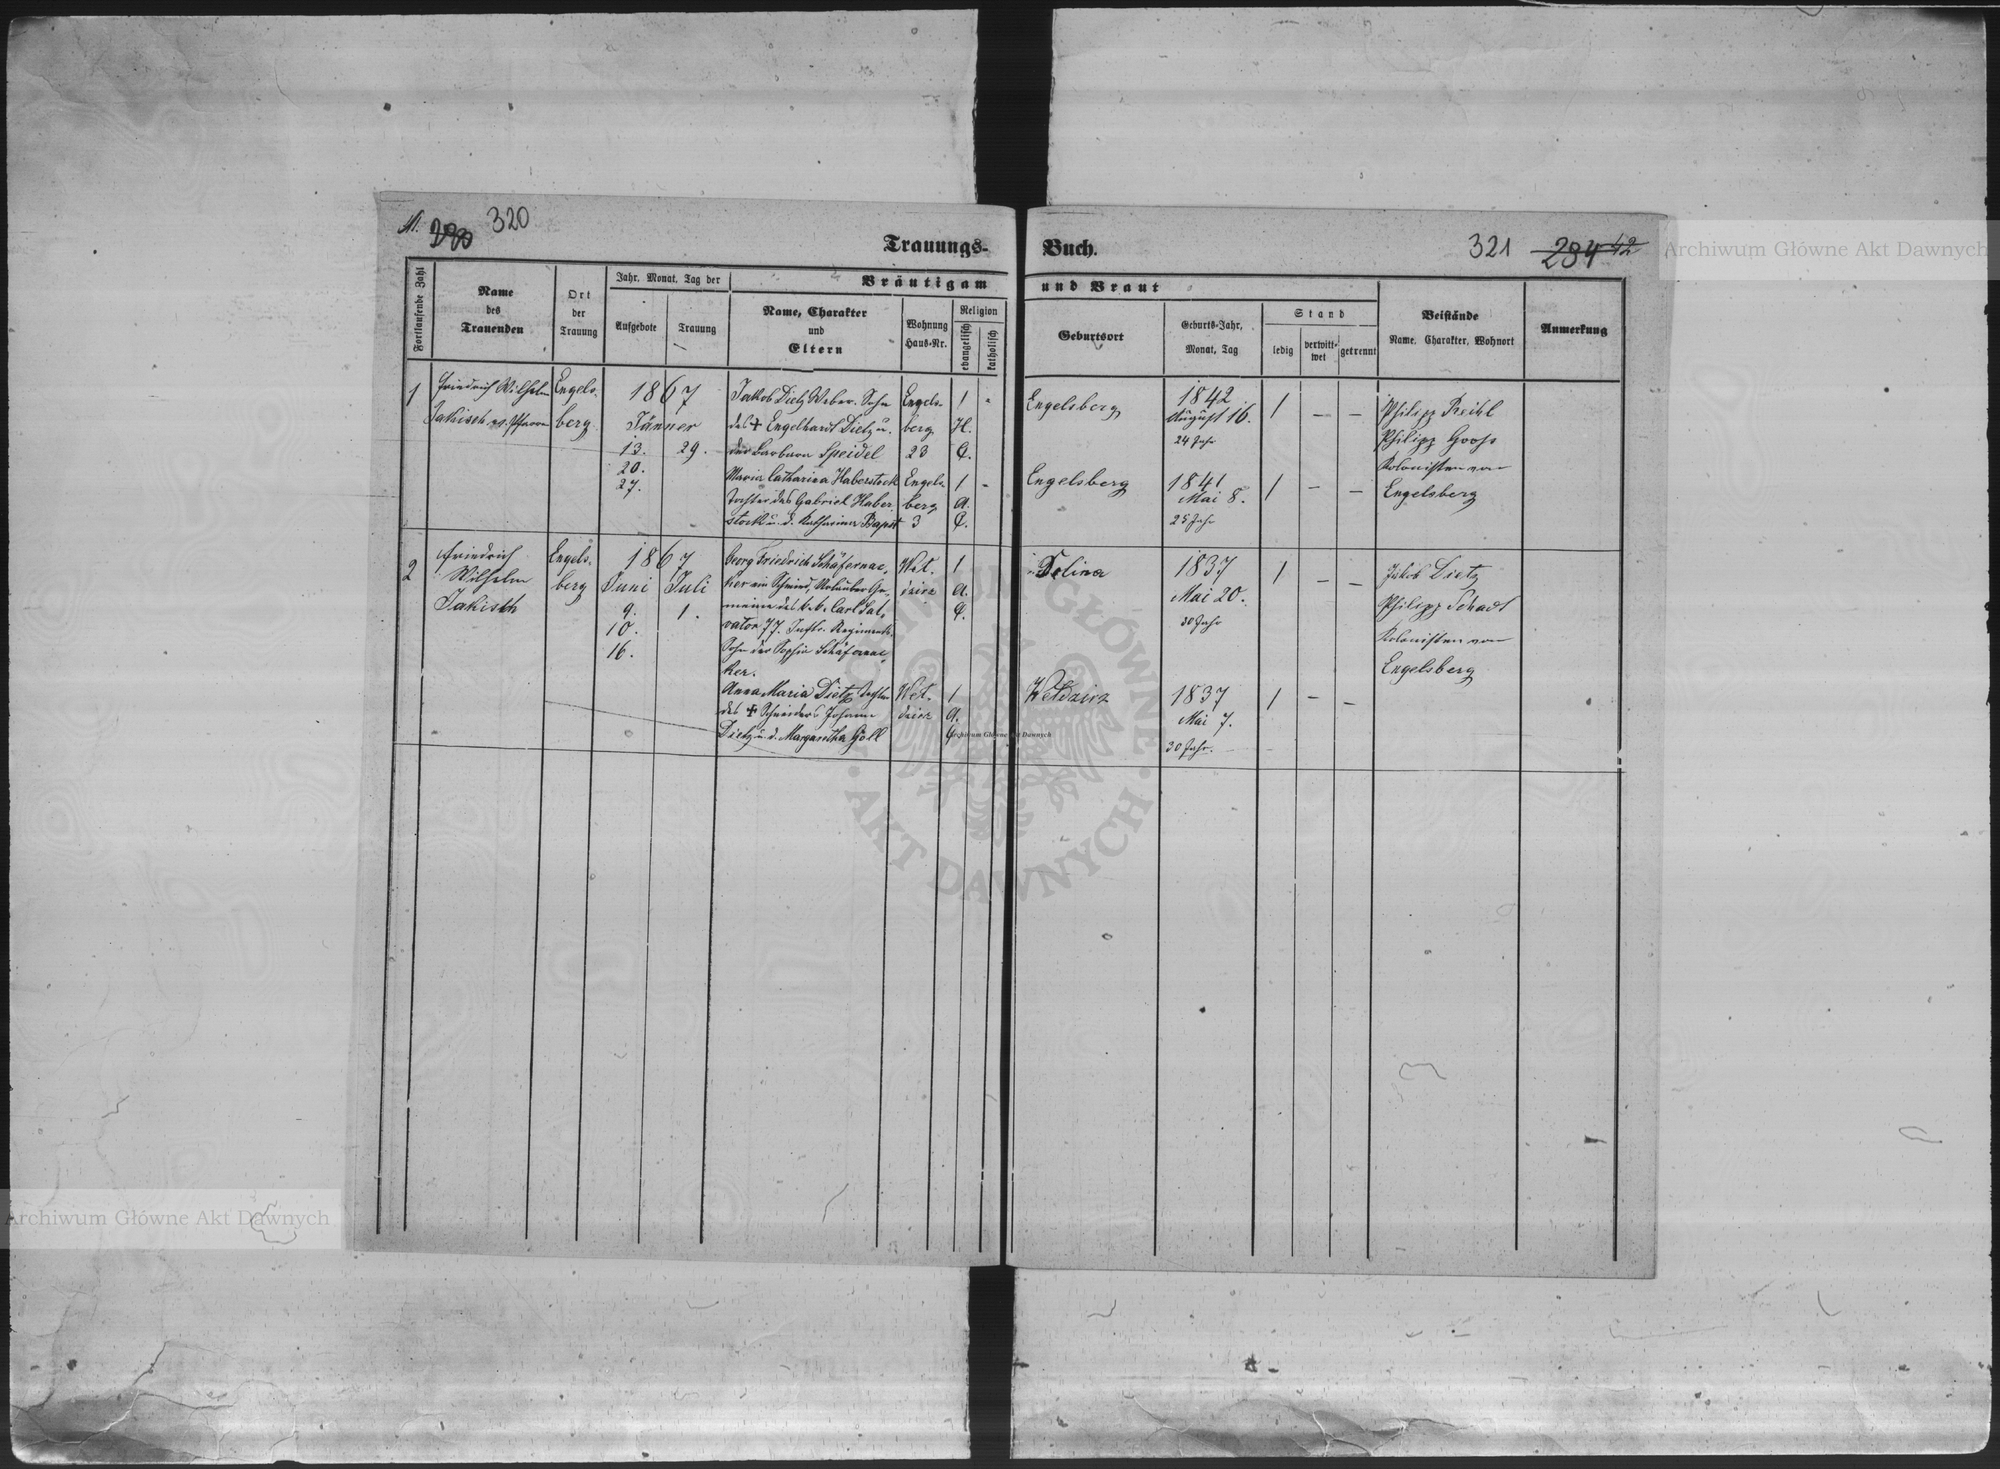 320
Trauungs-
Buch.
321 284 42
Archiwum Główne Akt Dawnych
Fortlaufende Zahl
Name
des
Trauenden
Ort
der
Trauung
Jahr. Monat. Tag der
Aufgebote
Trauung
Bräutigam
und Braut
Name, Charakter
und
Eltern
Wohnung
Haus-Nr.
Religion
evangelisch
katholisch
Geburtsort
Geburts-Jahr,
Monat, Tag
Stand
ledig
verwitt-
wet
getrennt
Beistände
Name. Charakter, Wohnort
Anmerkung
1
Friedrich Wilhelm
Jakisch Pfarrer
Engels-
berg.
1867
Jänner
13. 29.
20.
27.
Jakob Dietz Weber. Sohn
des + Engelhardt Dietz u.
der Barbara Speidel
Engels-
berg
23
1 -
H.
C.
Engelsberg
1842
August 16.
24 Jahr
1 - -
Philipp Reihl
Philipp Gooss
Kolonisten von
Engelsberg
Maria Catharina Haberstock
Tochter des Gabriel Haber
stock u. d. Katharina Bapst
Engels-
berg
3
1 -
A.
C.
Engelsberg
1841
Mai 8.
25 Jahr
1 - -
2
Friedrich
Wilhelm
Jakisch
Engels-
berg
1867
Juni Juli
9. 1.
10.
16.
Georg Friedrich Schäfernac-
ker ein Schmied, Urlauber Ge-
meine des k. k. Carl Sal-
vator 77. Inftr. Regiments
Sohn der Sophie Schäfernac-
ker.
Wel-
dzirz
1
A.
C.
Dolina
1837
Mai 20.
30 Jahr
1 - -
Jakob Dietz
Philipp Schadt
Kolonisten von
Engelsberg
Anna Maria Dietz Tochter
des + Schneiders Johann
Dietz u. d. Margaretha Göll
Wel-
dzirz
1
A.
C.
Weldzirz
1837
Mai 7.
30 Jahr.
1 - -
Archiwum Główne Akt Dawnych
ARCHIWUM GŁÓWNE
· AKT DAWNYCH ·
Archiwum Główne Akt Dawnych